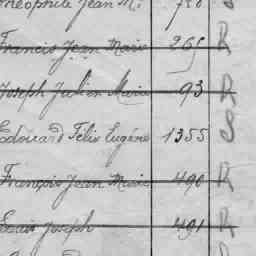 Théophile Jean M. 750 S
Francis Jean Marie 265 R
Joseph Julien Marie 93 R
Edouard Félix Eugène 1355 S
François Jean Marie 490 R
Joseph 491 R